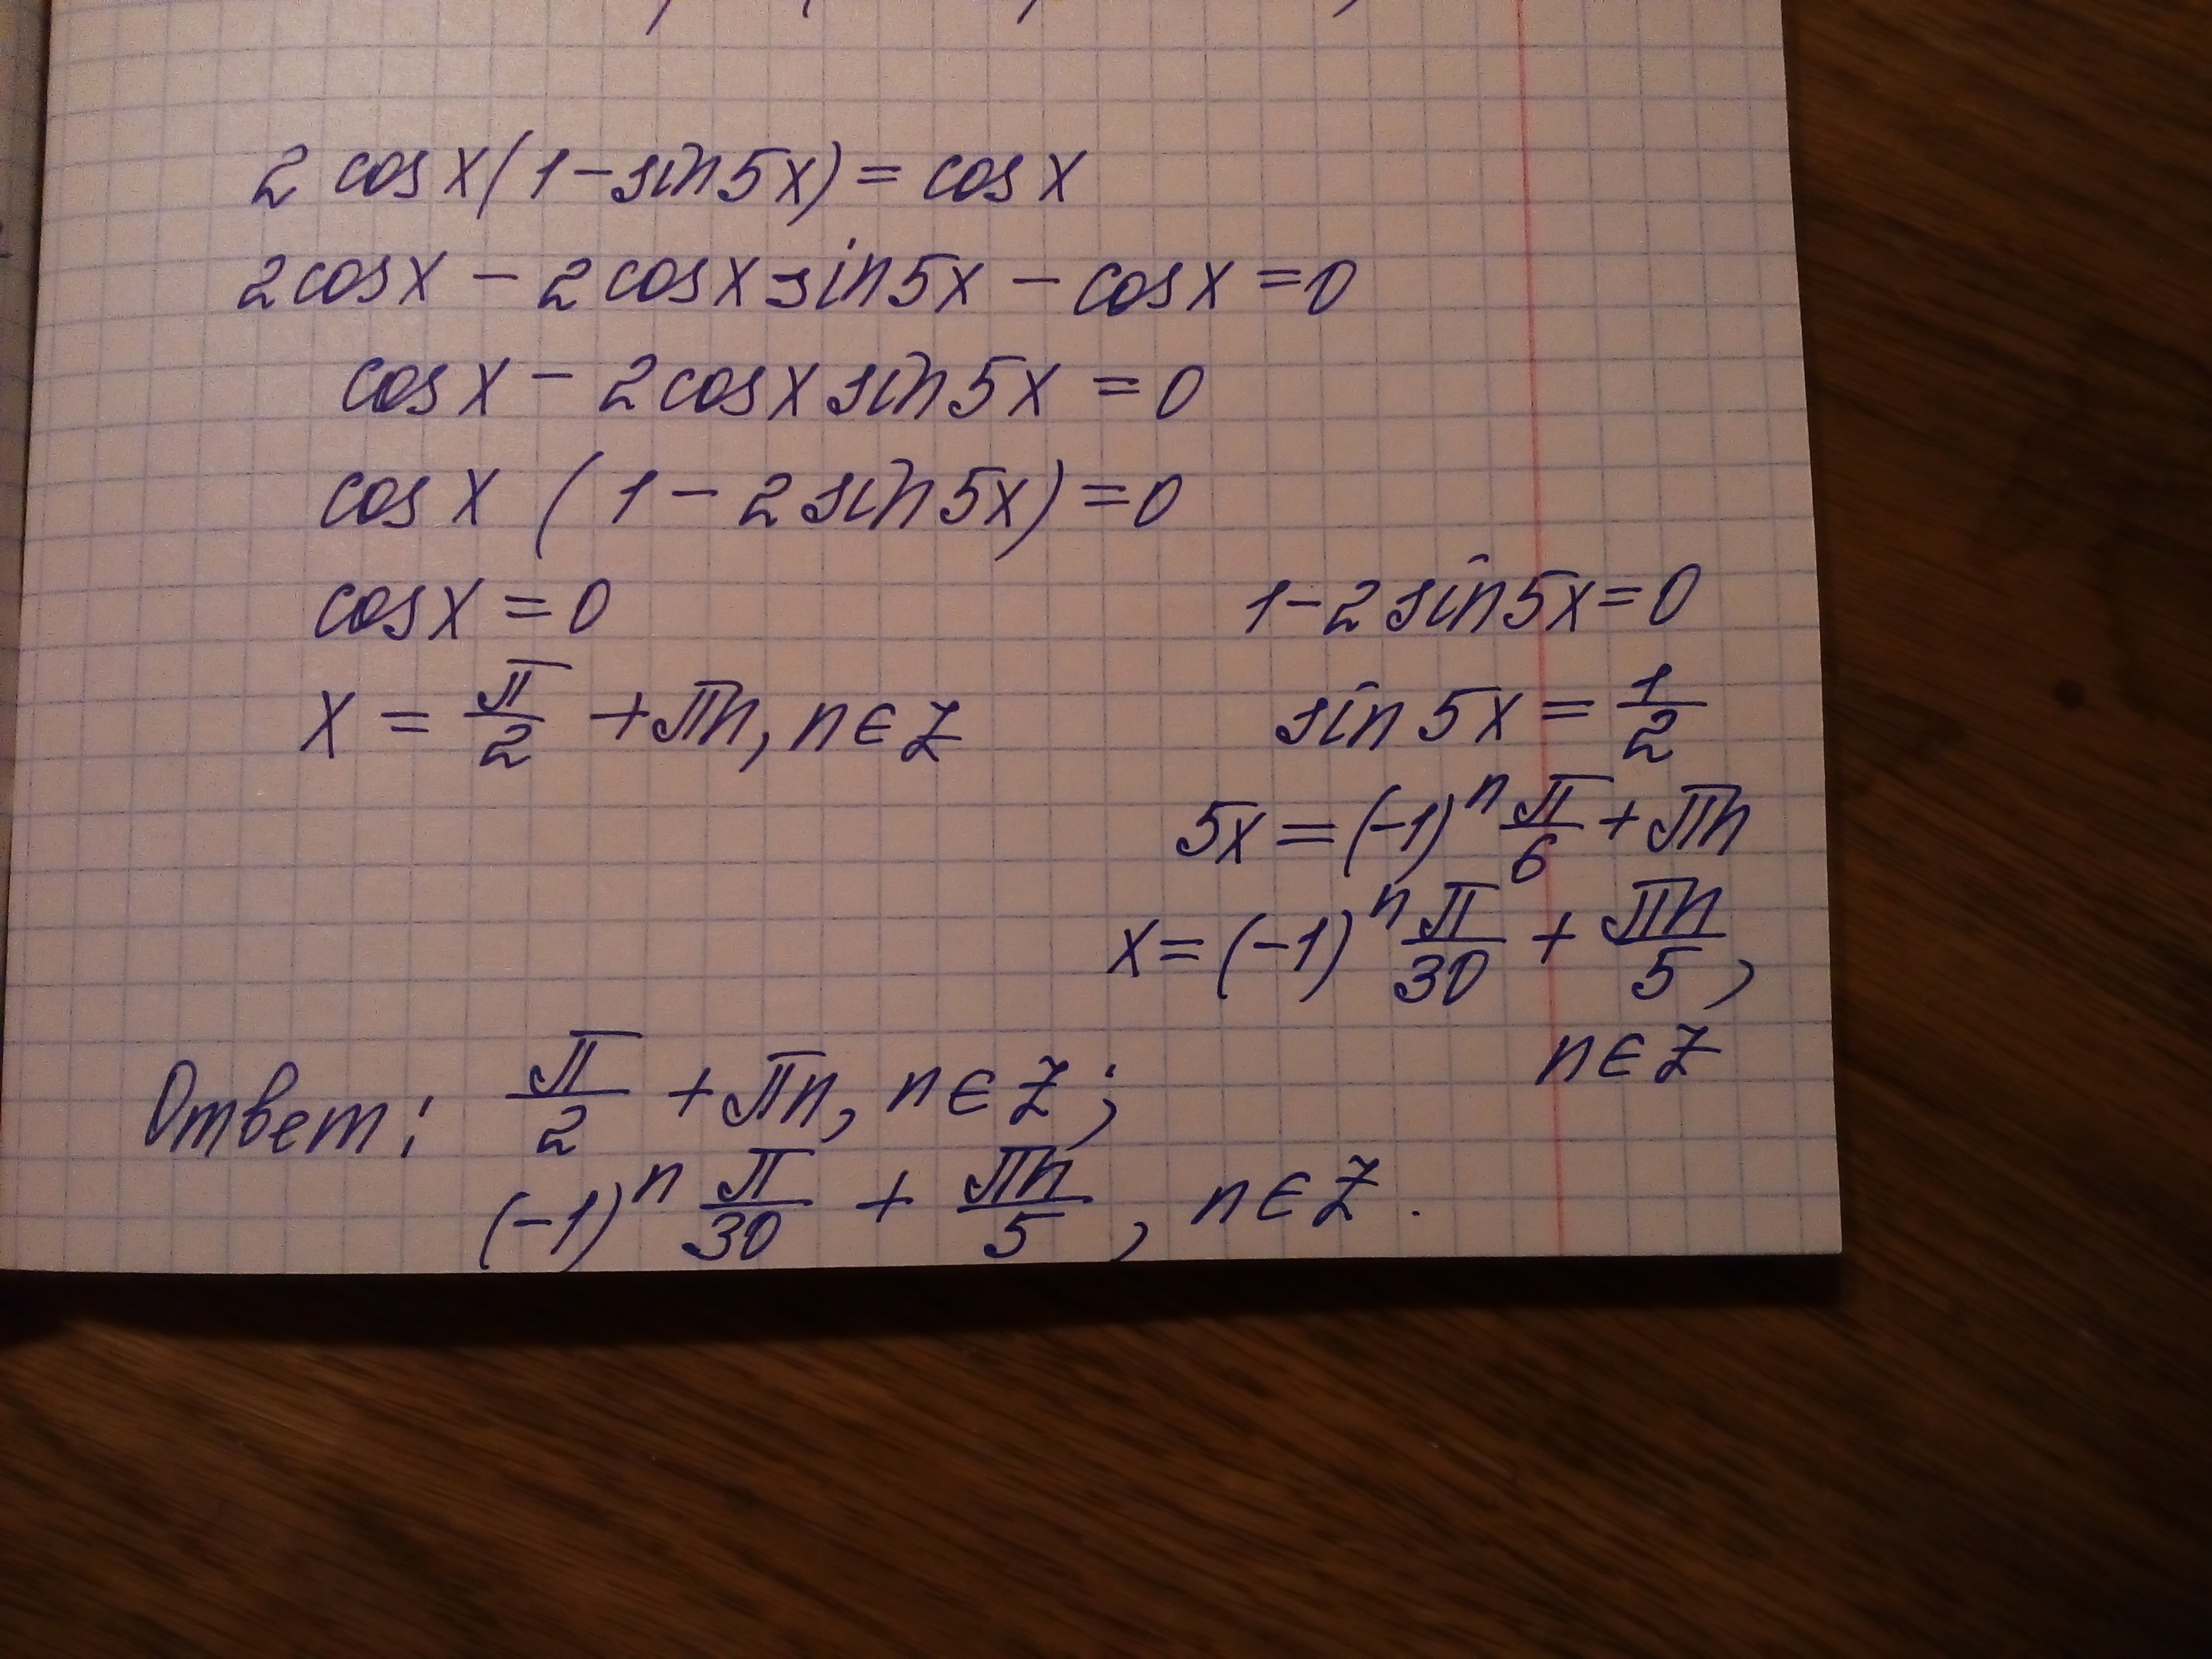 2 cos x (1 - sin 5x) = cos x
2 cos x - 2 cos x sin 5x - cos x = 0
cos x - 2 cos x sin 5x = 0
cos x (1 - 2 sin 5x) = 0
cos x = 0
x = π/2 + πn, n ∈ Z
1 - 2 sin 5x = 0
sin 5x = 1/2
5x = (-1)^n π/6 + πn
x = (-1)^n π/30 + πn/5,
n ∈ Z
Ответ: π/2 + πn, n ∈ Z;
(-1)^n π/30 + πn/5, n ∈ Z.